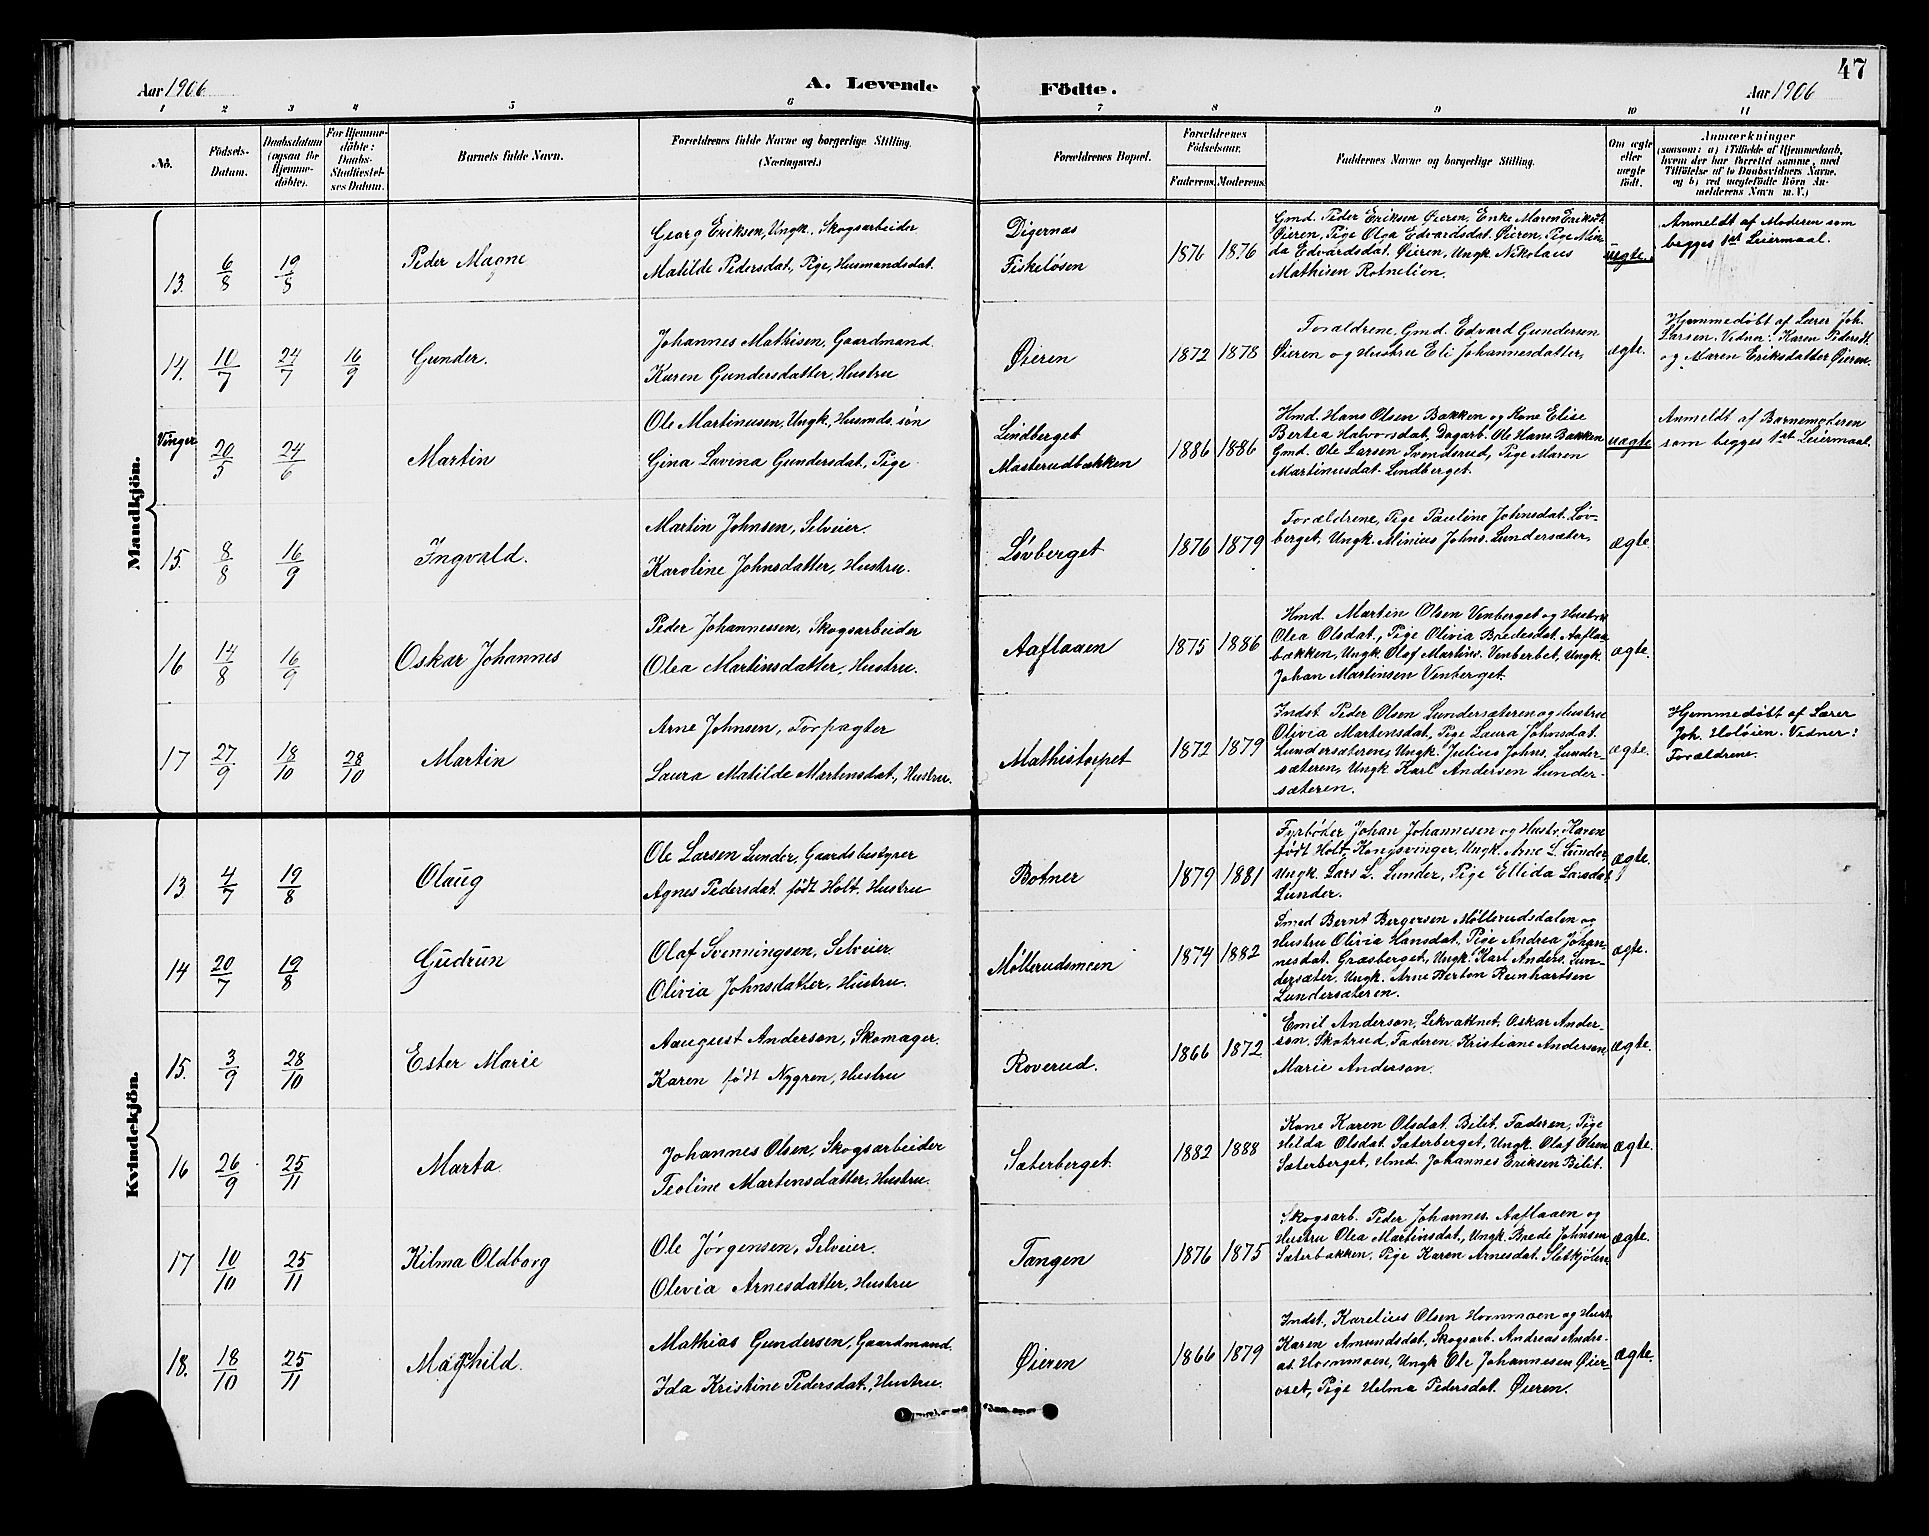 47
Aar 1906
A. Levende Födte.
Aar 1906
1 2 3 4 5 6 7 8 9 10 11
No.
Födsels-
Datum.
Daabsdatum
(ogsaa for
Hjemme-
døbte).
For Hjemme-
døbte:
Daabs-
Stadfæstel-
ses Datum.
Barnets fulde Navn.
Forældrenes fulde Navne og borgerlige Stilling.
(Næringsvei.)
Forældrenes Bopæl.
Forældrenes
Födselsaar.
Faderens. Moderens.
Faddernes Navne og borgerlige Stilling.
Om ægte
eller
uægte
født.
Anmærkninger
(saasom: a) i Tilfælde af Hjemmedaab,
hvem der har forrettet samme, med
Tilföielse af to Daabsvidners Navne,
og b) ved uægtefödte Börn An-
melderens Navn m. V.)
Mandkjön.
13. 6/8 19/8
Peder Magne
Georg Eriksen, Ungk., Skogsarbeider
Matilde Pedersdat., Pige, Husmandsdat.
Digernæs
Fiskeløsen
1876 1876
Gmd. Peder Eriksen Øieren, Enke Maren Eriksdt.
Øieren, Pige Olga Edvardsdat. Øieren, Pige Min-
da Edvardsdat. Øieren, Ungk. Nikolaus
Mathisen Rotnelien.
uægte.
Anmeldt af Moderen som
begges 1st Leiermaal.
14. 10/7 24/7 16/9
Gunder.
Johannes Mathisen, Gaardmand.
Karen Gundersdatter, Hustru
Øieren
1872 1878
Forældrene, Gmd. Edvard Gundersen
Øieren og Hustru Eli Johannesdatter,
ægte.
Hjemmedøbt af Lærer Joh.
Larsen. Vidner: Karen Pedersdt.
og Maren Eriksdatter Øieren.
Vinger 20/5 24/6
Martin
Ole Martinusen, Ungk., Husmds. søn
Gina Lovina Gundersdat., Pige
Lindberget
Masterudbækken
1886 1886
Hmd. Hans Olsen Bakken og Kone Elise
Bertea Halvorsdat, Dagarb. Ole Hans. Bakken
Gmd. Ole Larsen Svenderud, Pige Maren
Martinusdat. Lindberget.
uægte
Anmeldt af Barnemoderen
som begges 1st Leiermaal.
15. 8/8 16/9
Ingvald.
Martin Johnsen, Selveier.
Karoline Johnsdatter, Hustru.
Løvberget
1876 1879
Forældrene, Pige Pauline Johnsdat. Løv-
berget, Ungk. Minius Johns. Lundersæter,
ægte.
16 14/8 16/9
Oskar Johannes
Peder Johannessen, Skogsarbeider
Olea Martinsdatter, Hustru.
Aaflaaen
1875 1886
Hmd. Martin Olsen Venberget og Hustru
Olea Olsdat., Pige Olivia Bredesdat. Aaflaa-
bækken, Ungk. Olaf Martins. Venberbet, Ungk.
Johan Martinsen Venberget.
ægte.
17 27/9 18/10 28/10
Martin
Arne Johnsen, Forpagter
Laura Matilde Martinsdat, Hustru.
Mathistorpet
1872 1879
Indst. Peder Olsen Lundersæteren og Hustru
Olivia Martensdat., Pige Laura Johnsdat.
Lundersæteren, Ungk. Julius Johns. Lunder-
sæteren, Ungk. Karl Andersen Lunder-
sæteren.
ægte.
Hjemmedøbt af Lærer
Joh. Holøien. Vidner:
Forældrene.
Kvindekjön.
13. 4/7 19/8
Olaug
Ole Larsen Lunder, Gaardsbestyrer
Agnes Pedersdat. født Holt, Hustru
Botner
1879 1881
Fyrbøder Johan Johannesen og Hustr. Karen
født Holt, Kongsvinger, Ungk. Arne L. Lunder,
Ungk. Lars L. Lunder, Pige Ellida Larsdat.
Lunder.
ægte.
14 20/7 19/8
Gudrun
Olaf Svenningsen, Selveier.
Olivia Johnsdatter, Hustru.
Møllerudsmoen
1874 1882
Smed Bernt Bergersen Møllerudsdalen og
Hustru Olivia Hansdat., Pige Andrea Johan-
nesdat. Grasberget, Ungk. Karl Anders. Lun-
dersæter, Ungk. Arne Herton Reinhartsen
Lundersæteren.
ægte.
15. 3/9 28/10
Ester Marie
Aaugust Anderson, Skomager.
Karen født Nygren, Hustru
Roverud.
1866 1872
Emil Anderson, Lekvattnet, Oskar Ander-
son, Skotrud, Faderen, Kristiane Anderson,
Marie Anderson.
ægte.
16 26/9 25/11
Marta.
Johannes Olsen, Skogsarbeider
Teoline Martensdatter, Hustru.
Sæterberget.
1882 1888
Kone Karen Olsdat. Bilit, Faderen, Pige
Hilda Olsdat. Sæterberget, Ungk. Olaf Olsen
Sæterberget, Hmd. Johannes Eriksen Bilit.
ægte.
17 10/10 25/11
Kilma Oldborg
Ole Jørgensen, Selveier.
Olivia Arnesdatter, Hustru
Tangen
1876 1875
Skogsarb. Peder Johannes. Aaflaaen og
Hustru Olea Martinsdat., Ungk. Brede Johnsen
Sæterbakken, Pige Karen Arnesdat. Sletkjølen.
ægte.
18. 18/10 25/11
Maghild.
Mathias Gundersen, Gaardmand.
Ida Kristine Pedersdat., Hustru.
Øieren
1866 1879
Indst. Karelius Olsen Hornmoen og Hust.
Karen Amundsdat, Skogsarb. Andreas Andre-
as. Hornmoen, Ungk Ole Johannesen Øier-
oset, Pige Helma Pedersdat. Øieren.
ægte.